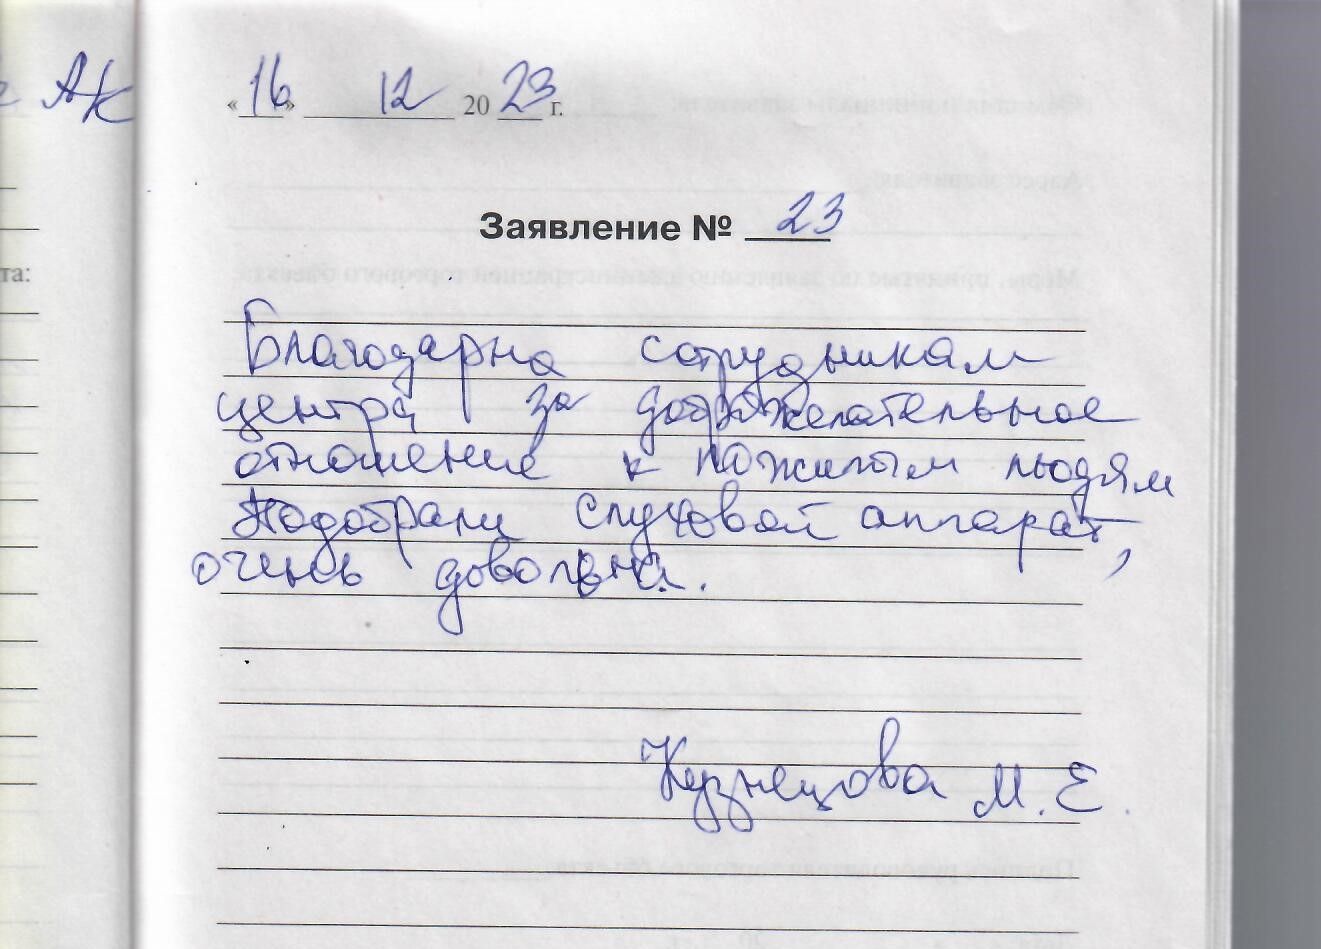 АК
«16» 12 2023 г.
Заявление № 23
та:
Благодарна сотрудникам
центра за доброжелательное
отношение к пожилым людям
Подобрали слуховой аппарат,
очень довольна.
Кузнецова М. Е.